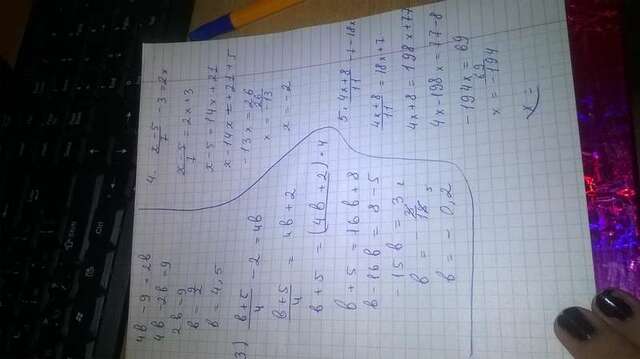 4b - 9 = 2b
4b - 2b = 9
2b = 9
b = 9/2
b = 4,5
3) (b+5)/4 - 2 = 4b
(b+5)/4 = 4b + 2
b + 5 = (4b + 2) · 4
b + 5 = 16b + 8
b - 16b = 8 - 5
-15b = 3
b = - 3/15
b = - 0,2
4. (x-5)/7 - 3 = 2x
(x-5)/7 = 2x + 3
x - 5 = 14x + 21
x - 14x = + 21 + 5
-13x = 26
x = 26/-13
x = -2
5. (4x+8)/11 - 7 = 18x
(4x+8)/11 = 18x + 7
4x + 8 = 198x + 77
4x - 198x = 77 - 8
-194x = 69
x = 69/-194
x =